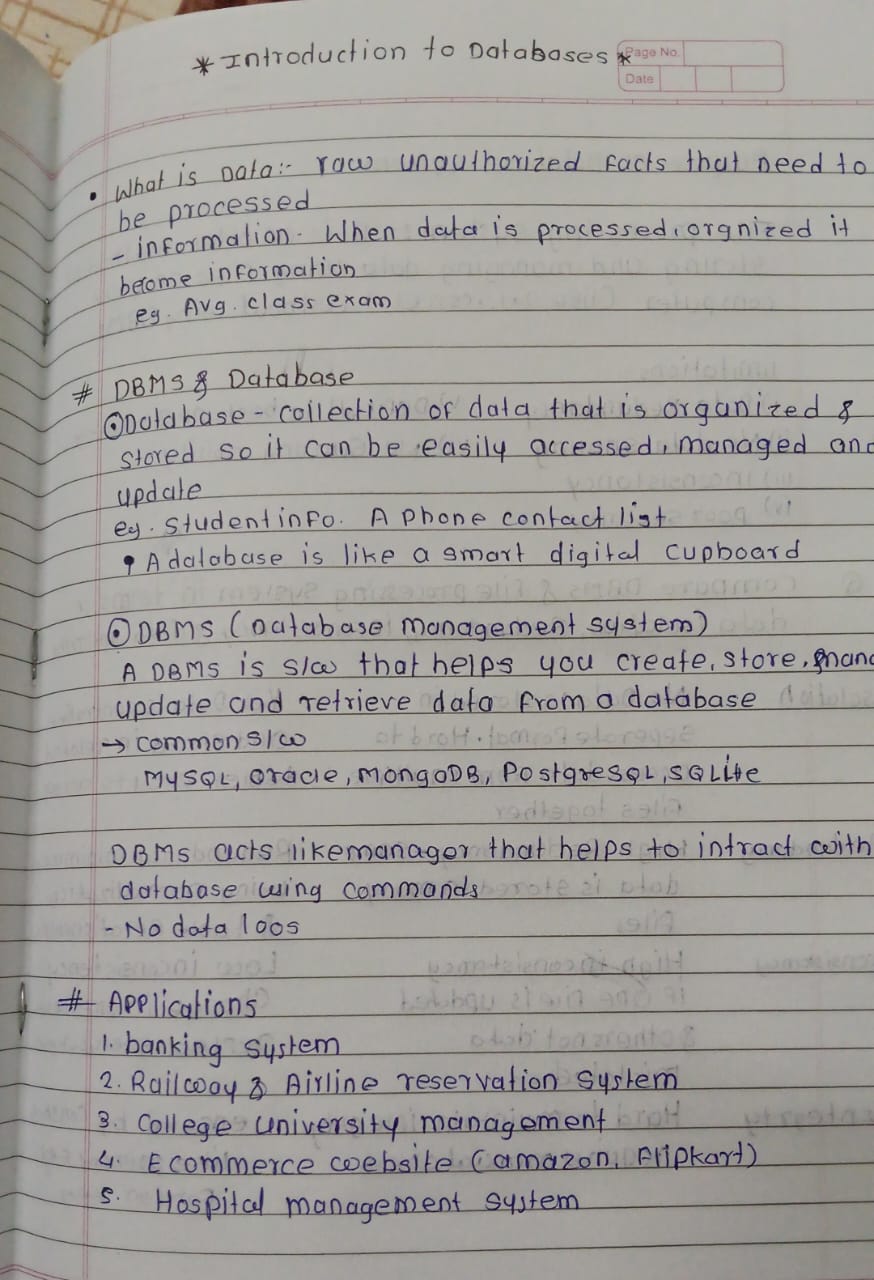 * Introduction to Databases *
Page No.
Date
• What is Data:- raw unauthorized facts that need to
be processed
- information - When data is processed, orgnized it
become information
eg. Avg. class exam
# DBMS & Database
⊙ Database - collection of data that is organized &
stored so it can be easily accessed, managed and
update
eg. Student info. A phone contact list
• A database is like a smart digital cupboard
⊙ DBMS (Database management system)
A DBMS is s/w that helps you create, store,
update and retrieve data from a database
→ common s/w
MySQL, Oracle, MongoDB, PostgreSQL, SQLite
DBMS acts like manager that helps to intract with
database using commands
- No data loos
# Applications
1. banking system
2. Railway & Airline reservation system
3. College university management
4. E commerce website (amazon, Flipkart)
5. Hospital management system